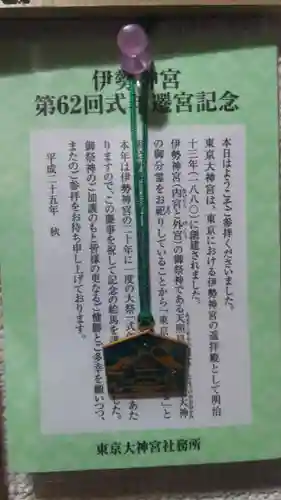 伊勢神宮
第62回式 遷宮記念
本日はようこそご参拝くださいました。
東京大神宮は、東京における伊勢神宮の遥拝殿として明治
十三年(一八八〇)に創建されました。
伊勢神宮(内宮と外宮)の御祭神である天照 大神
の御分霊をお祀りしていることから「東京 」と
本年は伊勢神宮の二十年に一度の大祭「式 あた
りますので、この慶事を祝して記念の絵馬を した。
御祭神のご加護のもと皆様の更なるご健勝とご多幸を願いつつ、
またのご参拝をお待ち申し上げております。
平成二十五年 秋
東京大神宮社務所